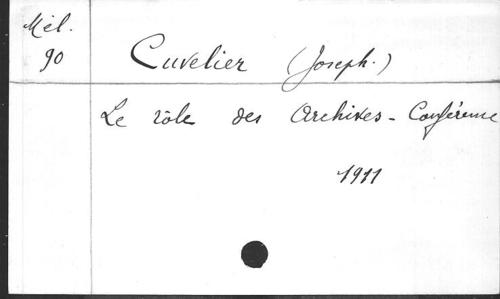 Mél.
90
Cuvelier (Joseph.)
Le rôle des Archives - Conférence
1911